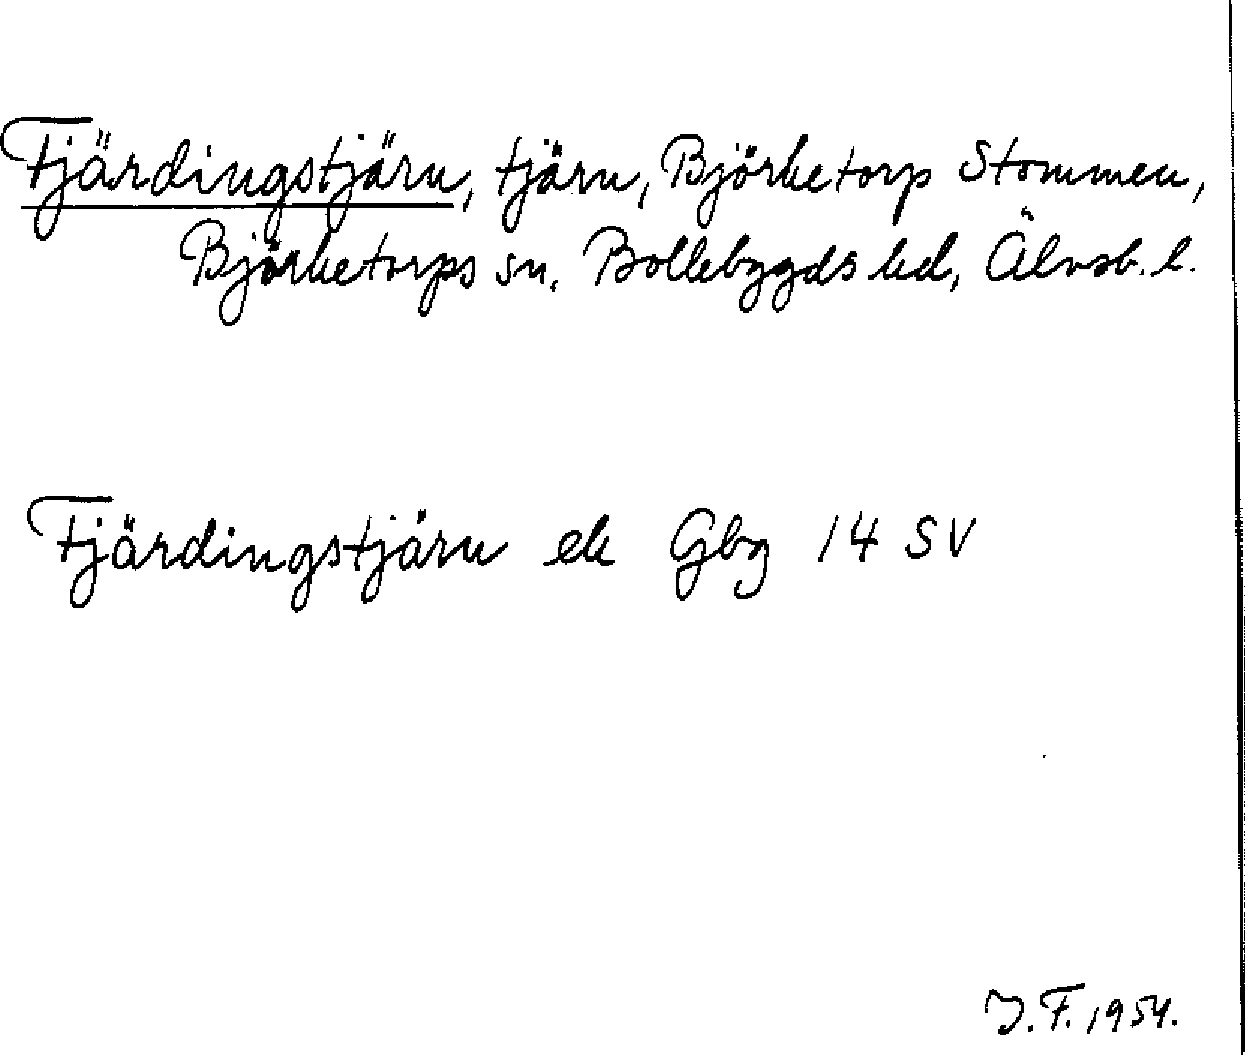 Fjärdingstjärn, tjärn, Björketorp Stommen,
Björketorps sn, Bollebygds hd, Älvsb. l.
Fjärdingstjärn ek Gbg 14 SV
J.F. 1954.